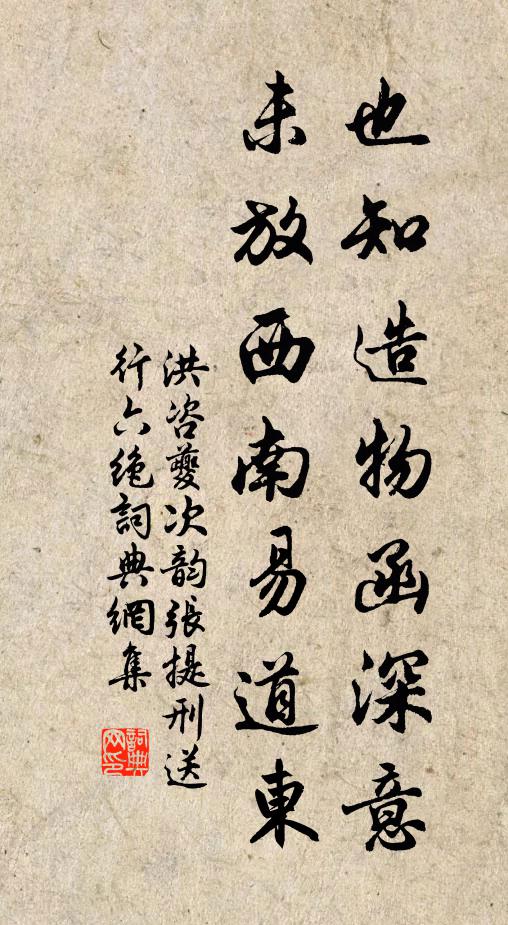 也知造物函深意
未放西南易道東
洪咨夔次韵張提刑送
行六絶詞典網集
詞典
网印